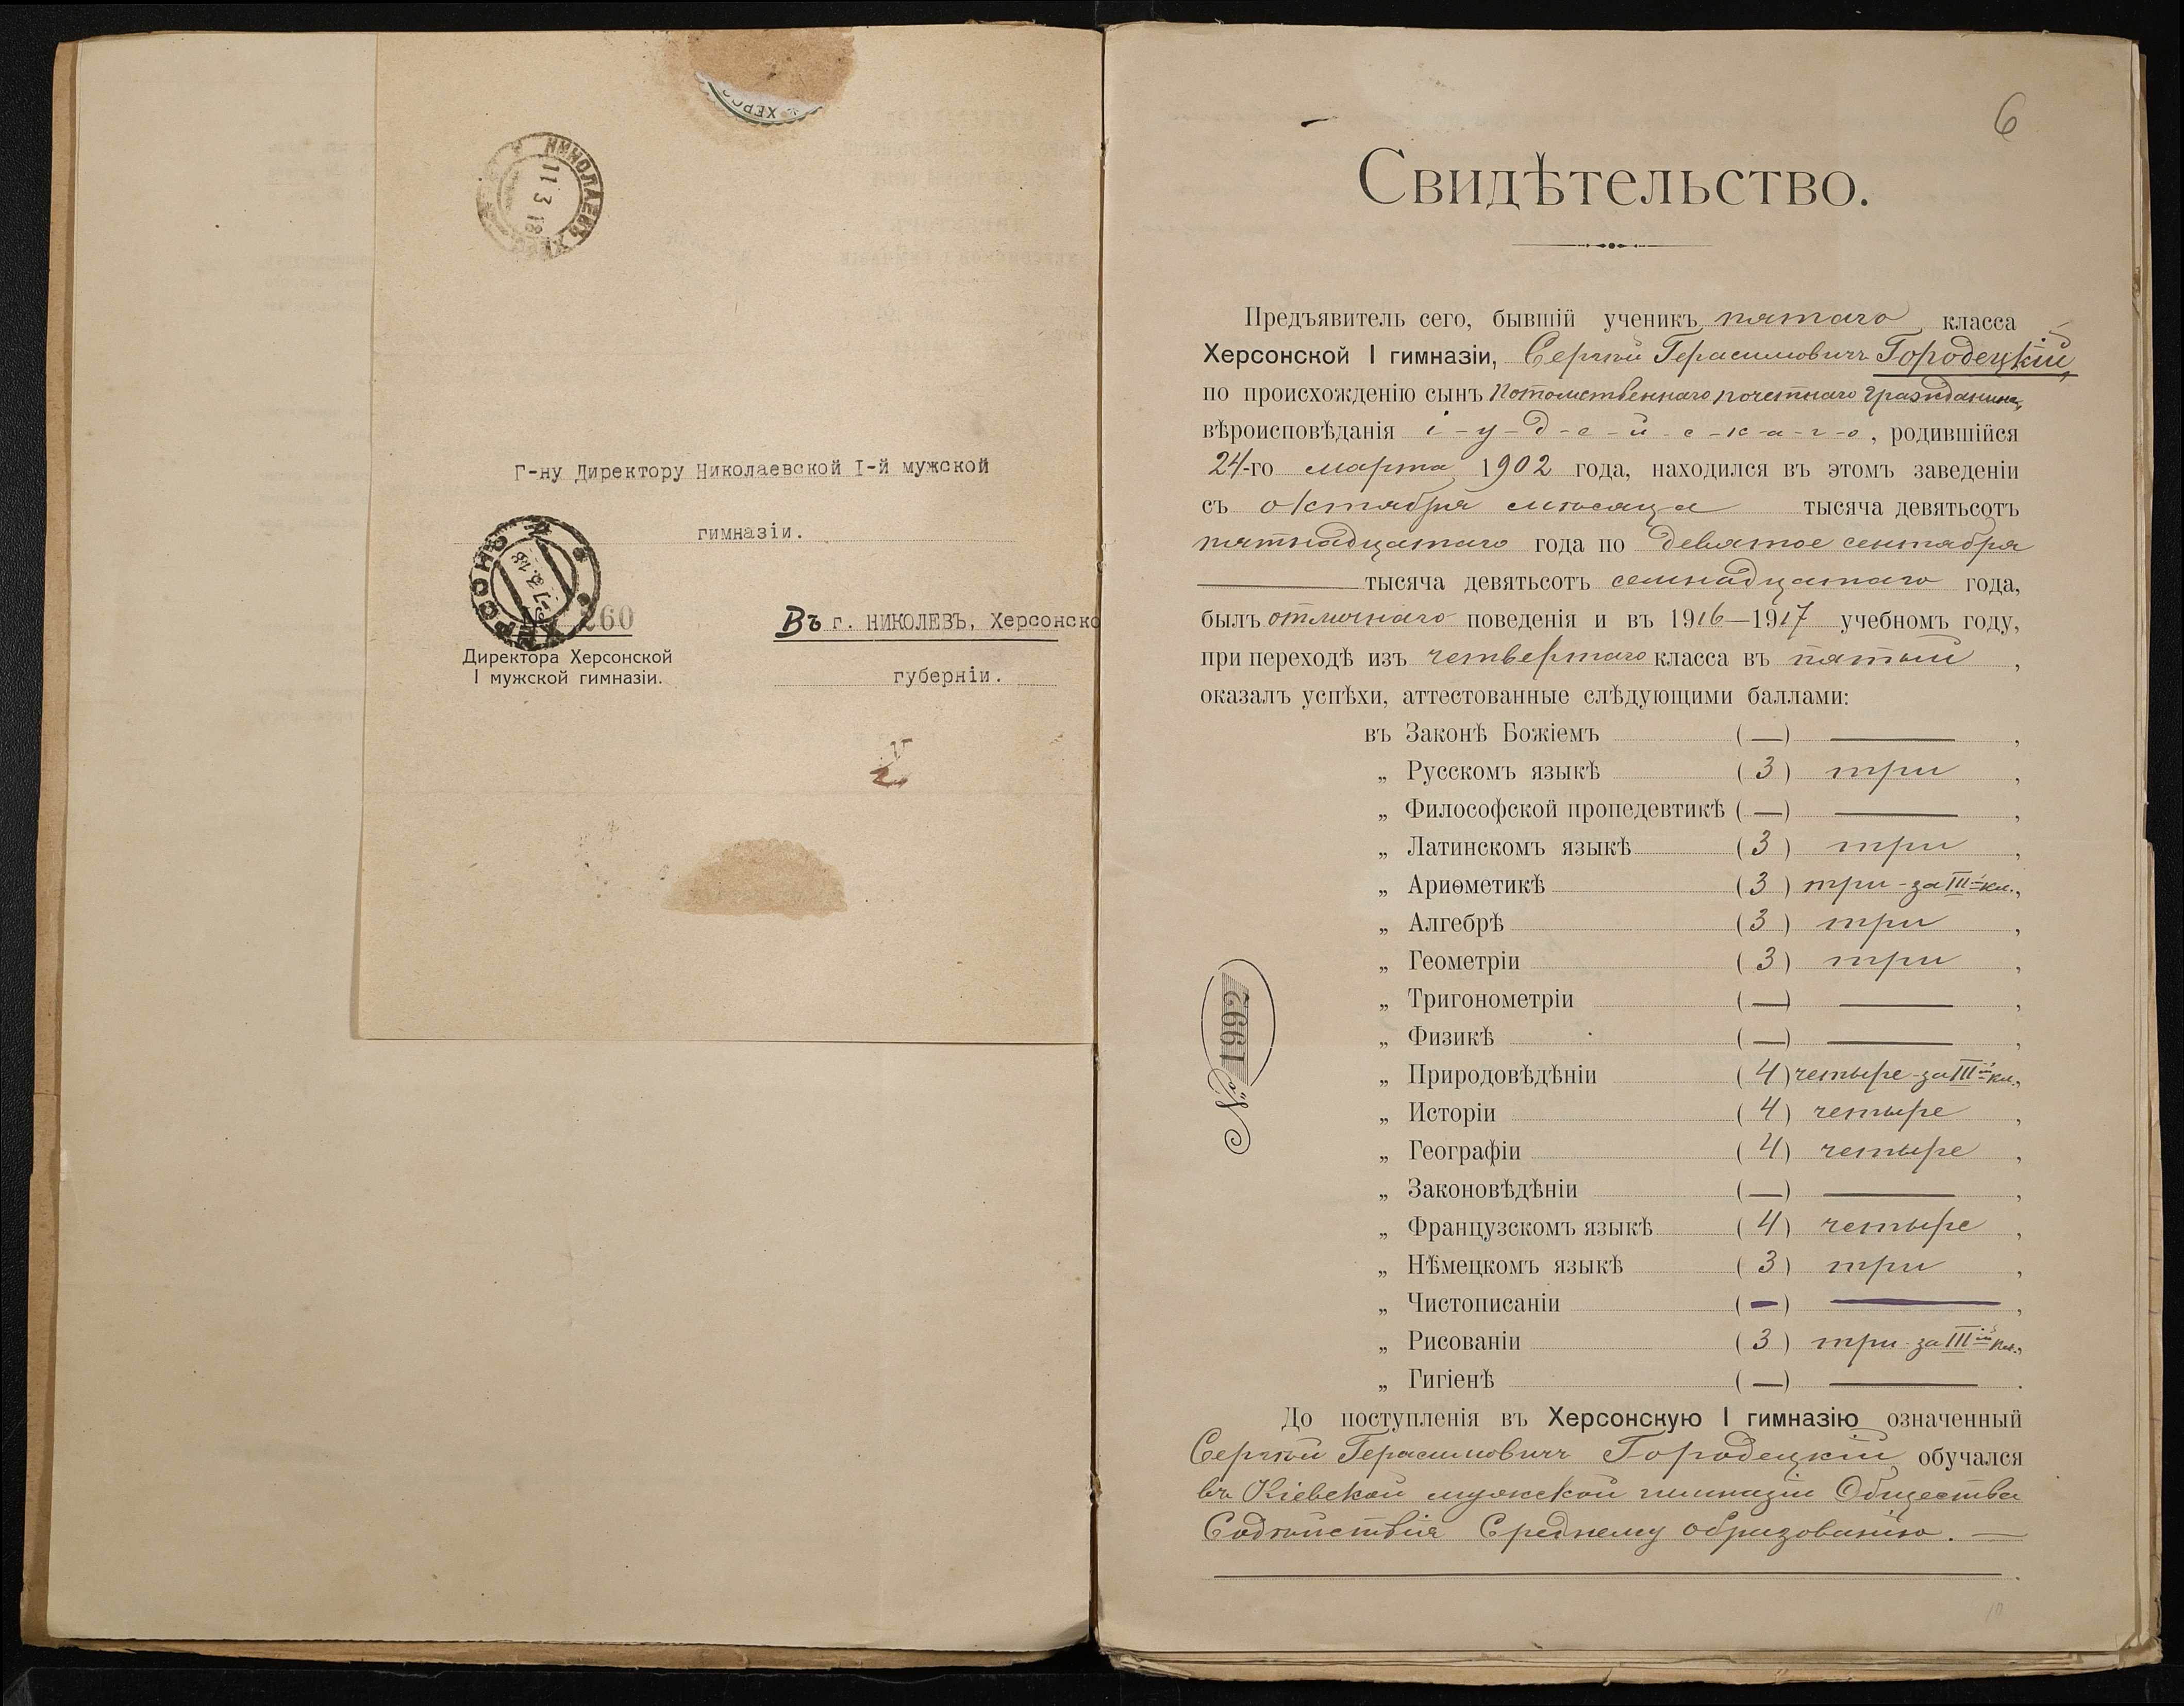 ХЕРСО
НИКОЛАЕВЪ ХЕРС
11 3 18
Г-ну Директору Николаевской I-й мужской
гимназіи.
ХЕРСОНЪ
7.3.18
260
Въ г. НИКОЛЕВЪ, Херсонско
Директора Херсонской
I мужской гимназіи.
губерніи.
6
Свидѣтельство.
Предъявитель сего, бывшій ученикъ пятаго класса
Херсонской I гимназіи, Сергѣй Герасимовичъ Городецкій,
по происхожденію сынъ потомственнаго почетнаго гражданина,
вѣроисповѣданія і-у-д-е-й-с-к-а-г-о, родившійся
24-го марта 1902 года, находился въ этомъ заведеніи
съ октября мѣсяца тысяча девятьсотъ
пятнадцатаго года по девятое сентября
тысяча девятьсотъ семнадцатаго года,
былъ отличнаго поведенія и въ 1916—1917 учебномъ году,
при переходѣ изъ четвертаго класса въ пятый,
оказалъ успѣхи, аттестованные слѣдующими баллами:
въ Законѣ Божіемъ (—) —,
„ Русскомъ языкѣ (3) три,
„ Философской пропедевтикѣ (—) —,
„ Латинскомъ языкѣ (3) три,
„ Ариѳметикѣ (3) три - за III-й кл.,
„ Алгебрѣ (3) три,
„ Геометріи (3) три,
„ Тригонометріи (—) —,
„ Физикѣ (—) —,
„ Природовѣдѣніи (4) четыре - за III-й кл.,
„ Исторіи (4) четыре,
„ Географіи (4) четыре,
„ Законовѣдѣніи (—) —,
„ Французскомъ языкѣ (4) четыре,
„ Нѣмецкомъ языкѣ (3) три,
„ Чистописаніи (—) —,
„ Рисованіи (3) три - за III-й кл.,
„ Гигіенѣ (—) —.
№ 1992
До поступленія въ Херсонскую I гимназію означенный
Сергѣй Герасимовичъ Городецкій обучался
въ Кіевской мужской гимназіи Общества
Содѣйствія Среднему образованію. —